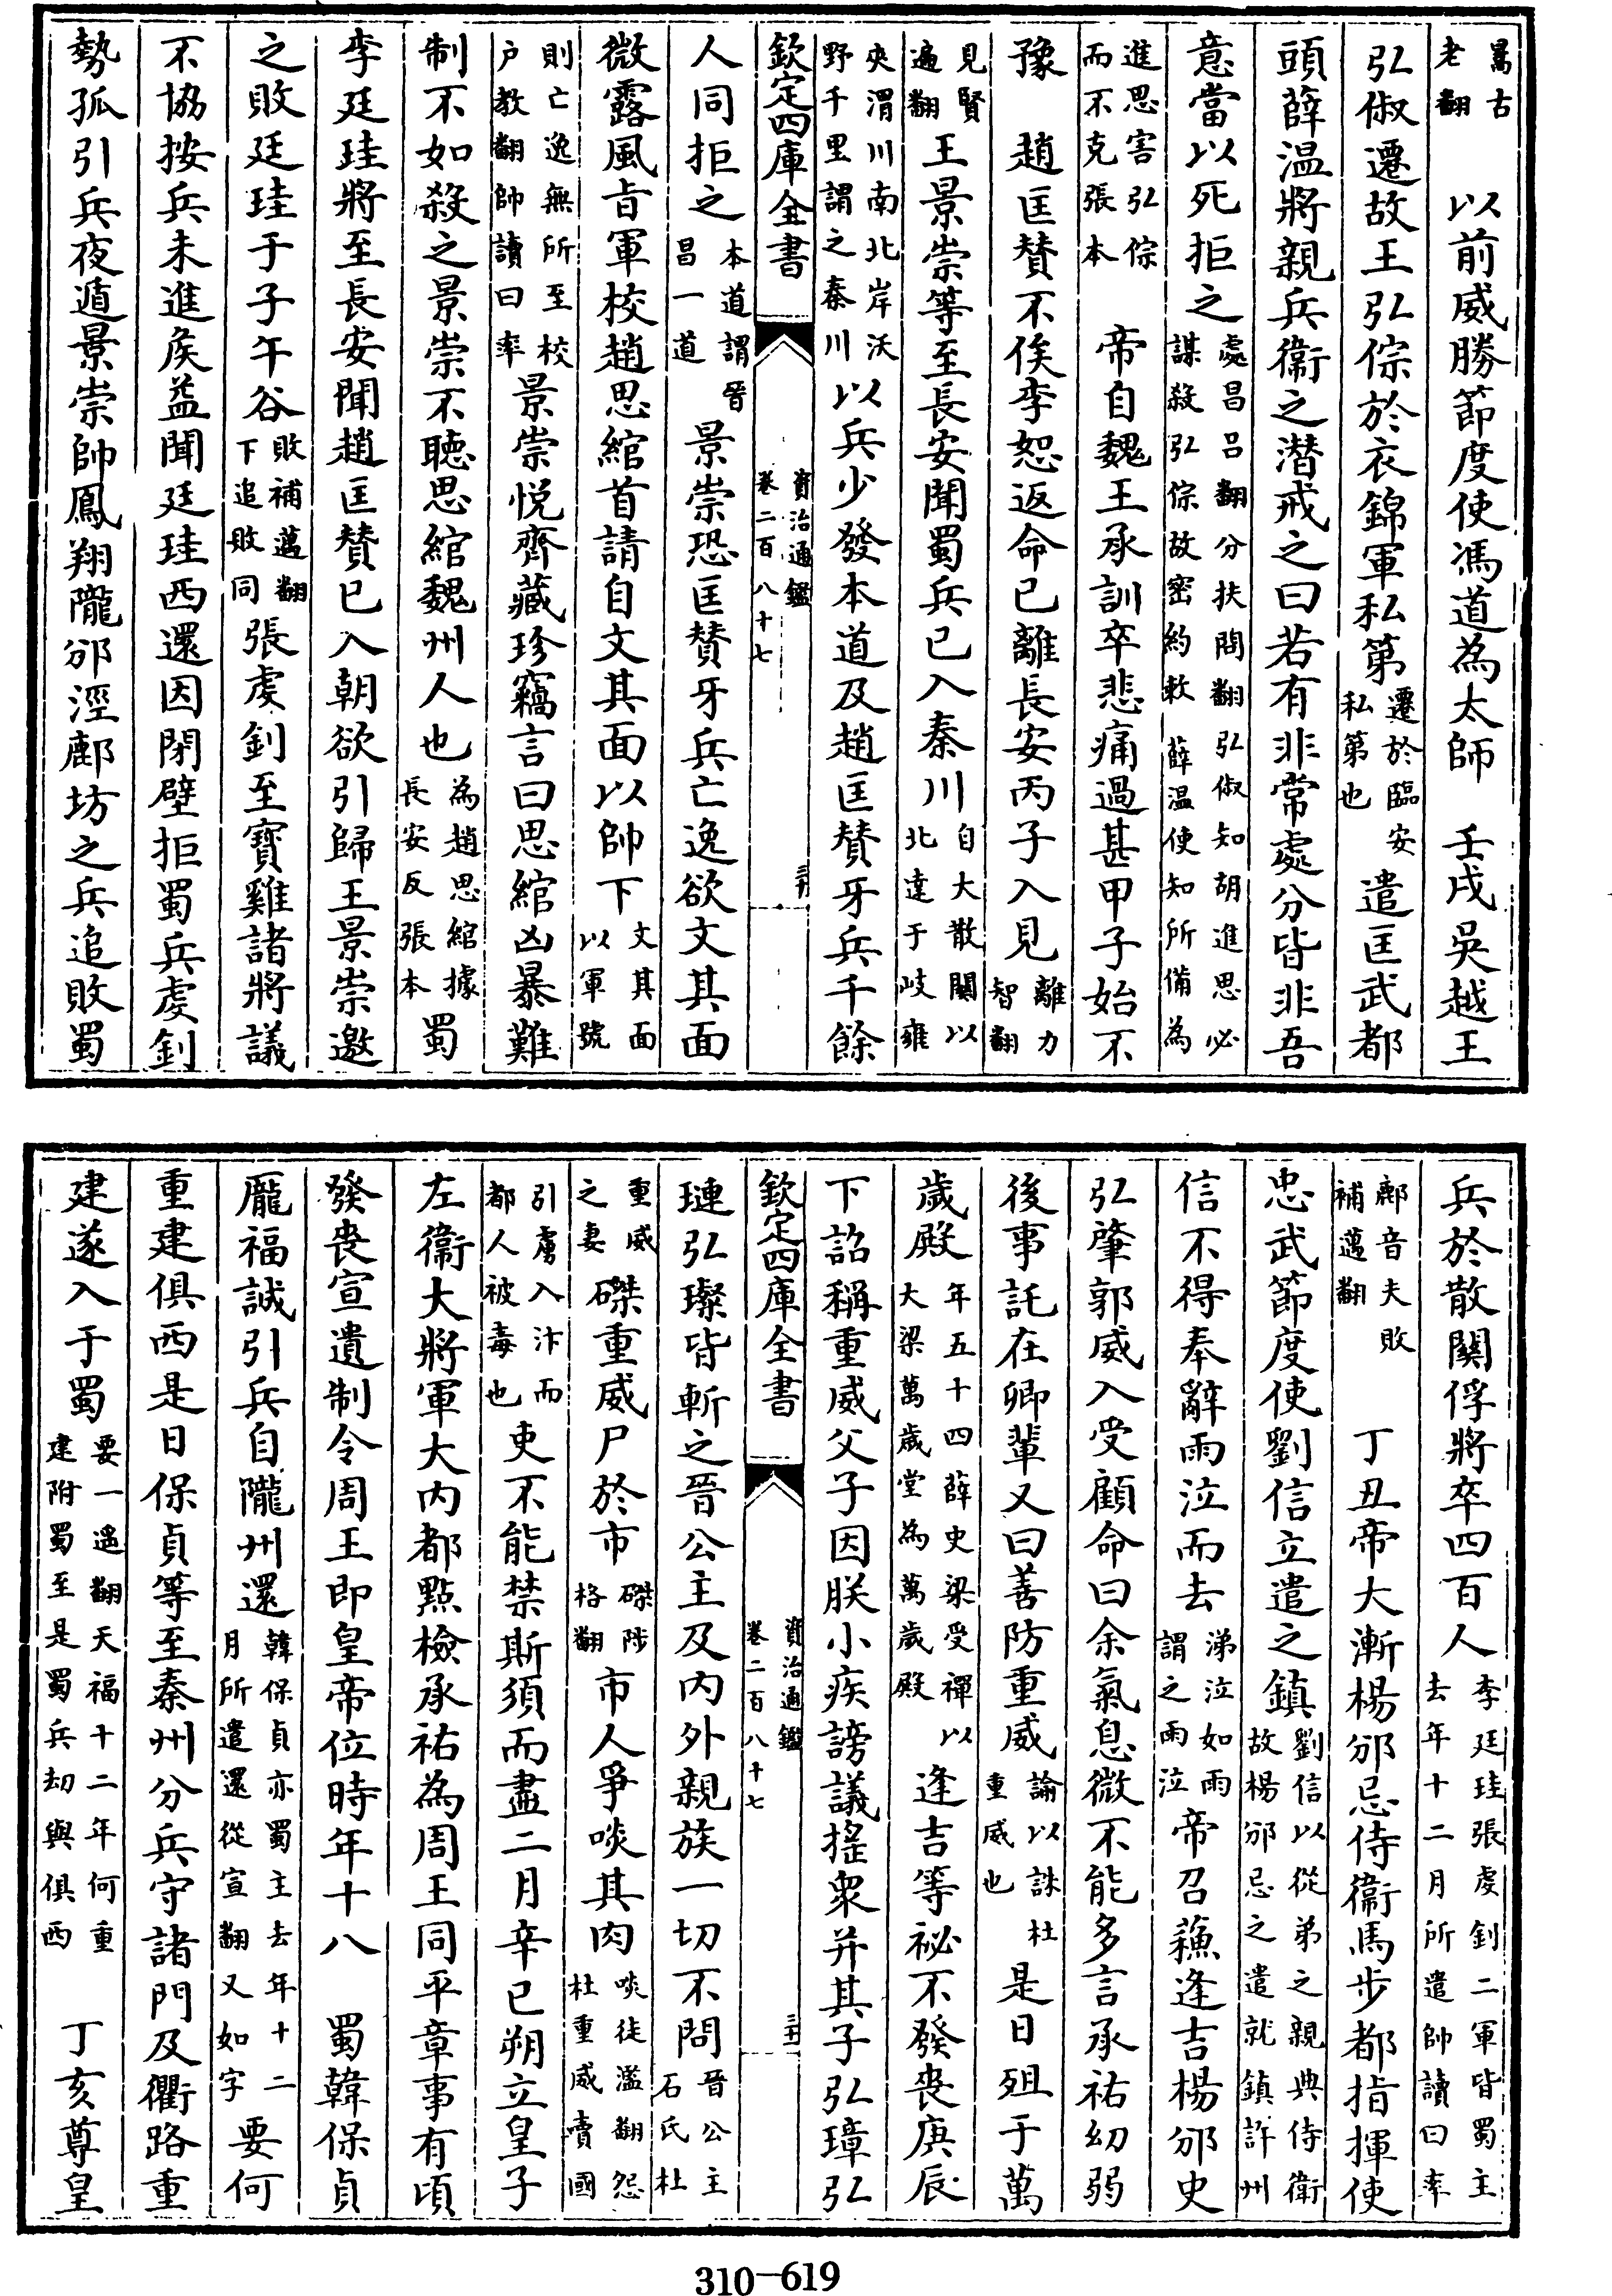 暠古老翻　以前威勝節度使馮道為太師　壬戌吳越王
弘俶遷故王弘倧於衣錦軍私第遷於臨安私第也遣匡武都
頭薛温將親兵衞之潛戒之曰若有非常處分皆非吾
意當以死拒之處昌吕翻分扶問翻弘俶知胡進思必謀殺弘倧故密約敕薛温使知所備為
進思害弘倧而不克張本　帝自魏王承訓卒悲痛過甚甲子始不
豫　趙匡贊不俟李恕返命已離長安丙子入見離力智翻
見賢遍翻王景崇等至長安聞蜀兵已入秦川自大散關以北達于岐雍
夾渭川南北岸沃野千里謂之秦川以兵少發本道及趙匡贊牙兵千餘
欽定四庫全書　資治通鑑卷二百八十七
人同拒之本道謂晉昌一道景崇恐匡贊牙兵亡逸欲文其面
微露風旨軍校趙思綰首請自文其面以帥下文其面以軍號
則亡逸無所至校户教翻帥讀曰率景崇悦齊藏珍竊言曰思綰凶暴難
制不如殺之景崇不聽思綰魏州人也為趙思綰據長安反張本蜀
李廷珪將至長安聞趙匡贊已入朝欲引歸王景崇邀
之敗廷珪于子午谷敗補邁翻下追敗同張虔釗至寶雞諸將議
不協按兵未進侯益聞廷珪西還因閉壁拒蜀兵虔釗
勢孤引兵夜遁景崇帥鳳翔隴邠涇鄜坊之兵追敗蜀
兵於散關俘將卒四百人李廷珪張虔釗二軍皆蜀主去年十二月所遣帥讀曰率
鄜音夫敗補邁翻　丁丑帝大漸楊邠忌侍衞馬步都指揮使
忠武節度使劉信立遣之鎮劉信以從弟之親典侍衞故楊邠忌之遣就鎮許州
信不得奉辭雨泣而去涕泣如雨謂之雨泣帝召蘓逢吉楊邠史
弘肇郭威入受顧命曰余氣息微不能多言承祐幼弱
後事託在卿輩又曰善防重威論以誅杜重威也是日殂于萬
歲殿年五十四薛史梁受禪以大梁萬歲堂為萬歲殿逢吉等祕不發喪庚辰
下詔稱重威父子因朕小疾謗議揺衆并其子弘璋弘
欽定四庫全書　資治通鑑卷二百八十七
璉弘璨皆斬之晉公主及内外親族一切不問晉公主石氏杜
重威之妻磔重威尸於市磔陟格翻市人爭啖其肉啖徒濫翻怨杜重威賣國
引虜入汴而都人被毒也吏不能禁斯須而盡二月辛巳朔立皇子
左衞大將軍大内都點檢承祐為周王同平章事有頃
發喪宣遺制令周王即皇帝位時年十八　蜀韓保貞
龎福誠引兵自隴州還韓保貞亦蜀主去年十二月所遣還從宣翻又如字要何
重建俱西是日保貞等至秦州分兵守諸門及衢路重
建遂入于蜀要一遥翻天福十二年何重建附蜀至是蜀兵刼與俱西　丁亥尊皇
310-619